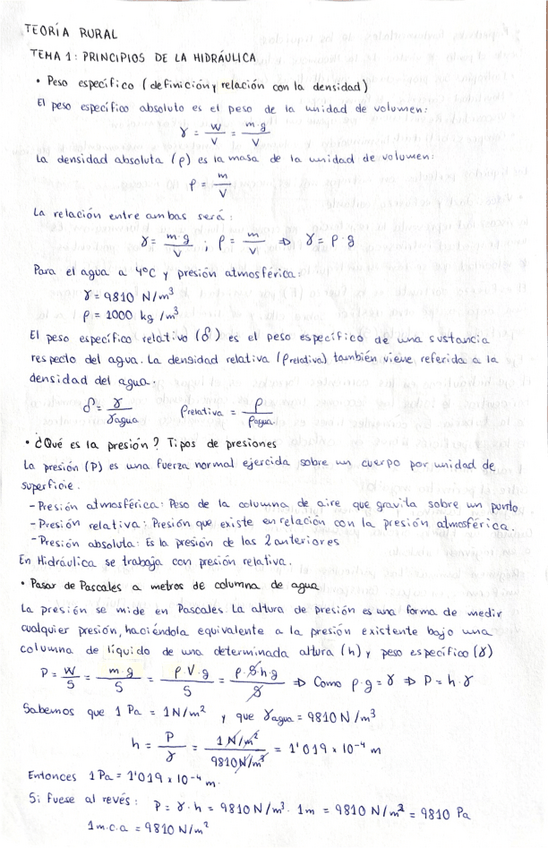 TEORÍA RURAL
TEMA 1: PRINCIPIOS DE LA HIDRÁULICA
• Peso específico (definición y relación con la densidad)
El peso específico absoluto es el peso de la unidad de volumen:
γ = W/V = m·g/V
La densidad absoluta (ρ) es la masa de la unidad de volumen:
ρ = m/V
La relación entre ambas será:
γ = m·g/V ; ρ = m/V ⇒ γ = ρ·g
Para el agua a 4ºC y presión atmosférica:
γ = 9810 N/m³
ρ = 1000 kg/m³
El peso específico relativo (δ) es el peso específico de una sustancia
respecto del agua. La densidad relativa (ρrelativa) también viene referida a la
densidad del agua.
δ = γ/γagua ρrelativa = ρ/ρagua
• ¿Qué es la presión? Tipos de presiones
La presión (P) es una fuerza normal ejercida sobre un cuerpo por unidad de
superficie.
- Presión atmosférica: Peso de la columna de aire que gravita sobre un punto
- Presión relativa: Presión que existe en relación con la presión atmosférica.
- Presión absoluta: Es la presión de las 2 anteriores
En Hidráulica se trabaja con presión relativa.
• Pasar de Pascales a metros de columna de agua
La presión se mide en Pascales. La altura de presión es una forma de medir
cualquier presión, haciéndola equivalente a la presión existente bajo una
columna de líquido de una determinada altura (h) y peso específico (γ)
P = W/S = m·g/S = ρ·V·g/S = ρ·S·h·g/S ⇒ Como ρ·g = γ ⇒ P = h·γ
Sabemos que 1 Pa = 1N/m² y que γagua = 9810 N/m³
h = P/γ = 1 N/m²/9810 N/m³ = 1'019 x 10⁻⁴ m
Entonces 1 Pa = 1'019 x 10⁻⁴ m.
Si fuese al revés: P = γ·h = 9810 N/m³ · 1m = 9810 N/m² = 9810 Pa
1m.c.a = 9810 N/m²